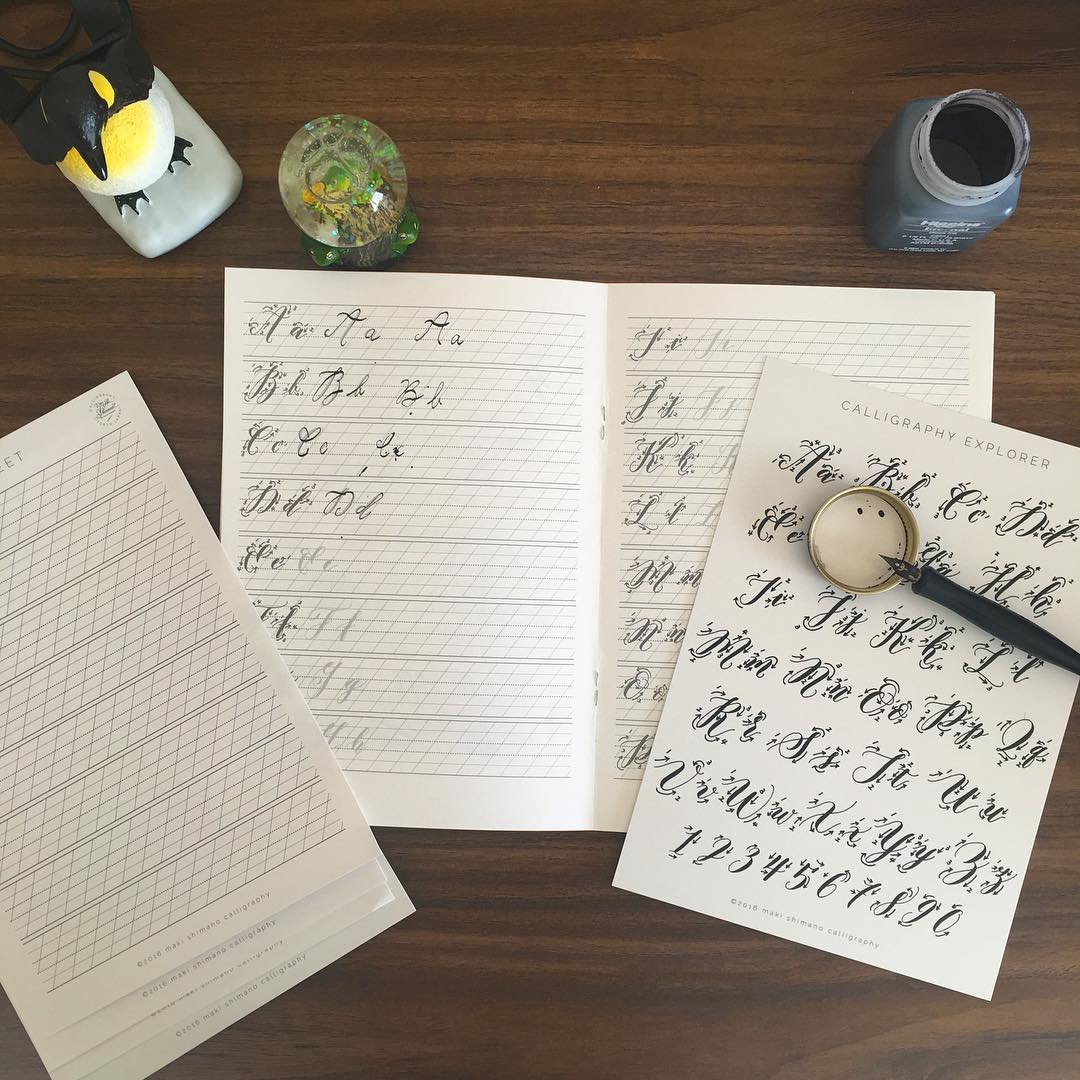 Higgins
Eternal
EET
©2016 maki shimano calligraphy
©2016 maki shimano calligraphy
©2016 maki shimano calligraphy
©2016 maki shimano calligraphy
Aa Aa Aa
Bb Bb Bb
Cc Cc Cc
Dd Dd
Ee Ee
Ff Ff
Gg
Hh
Ii Ii
Jj
Kk
Ll
Mm
Nn
Oo
Pp
CALLIGRAPHY EXPLORER
Aa Bb Cc Dd
Ee Gg Hh
Ii Jj Kk Ll
Mm Nn Oo Pp Qq
Rr Ss Tt Uu
Vv Ww Xx Yy Zz
1 2 3 4 5 6 7 8 9 0
©2016 maki shimano calligraphy